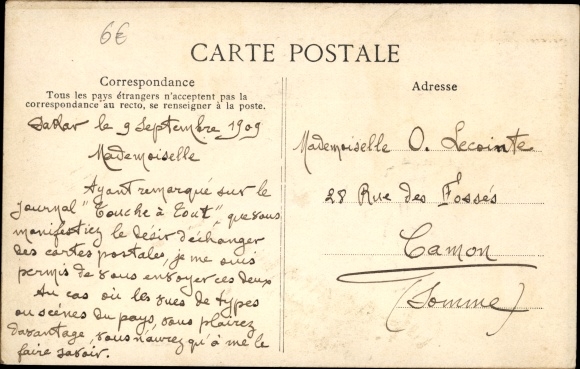 6€
CARTE POSTALE
Correspondance
Tous les pays étrangers n'acceptent pas la
correspondance au recto, se renseigner à la poste.
Dakar le 9 Septembre 1909
Mademoiselle
Ayant remarqué sur le
Journal "Touche à Tout", que vous
manifestiez le désir d'échanger
des cartes postales, je me suis
permis de vous envoyer ces deux
Au cas où les vues de types
ou scènes du pays, vous plairez
davantage, vous n'aurez qu'à me le
faire savoir.
Adresse
Mademoiselle O. Lecointe
28 Rue des Fossés
Camon
(Somme)